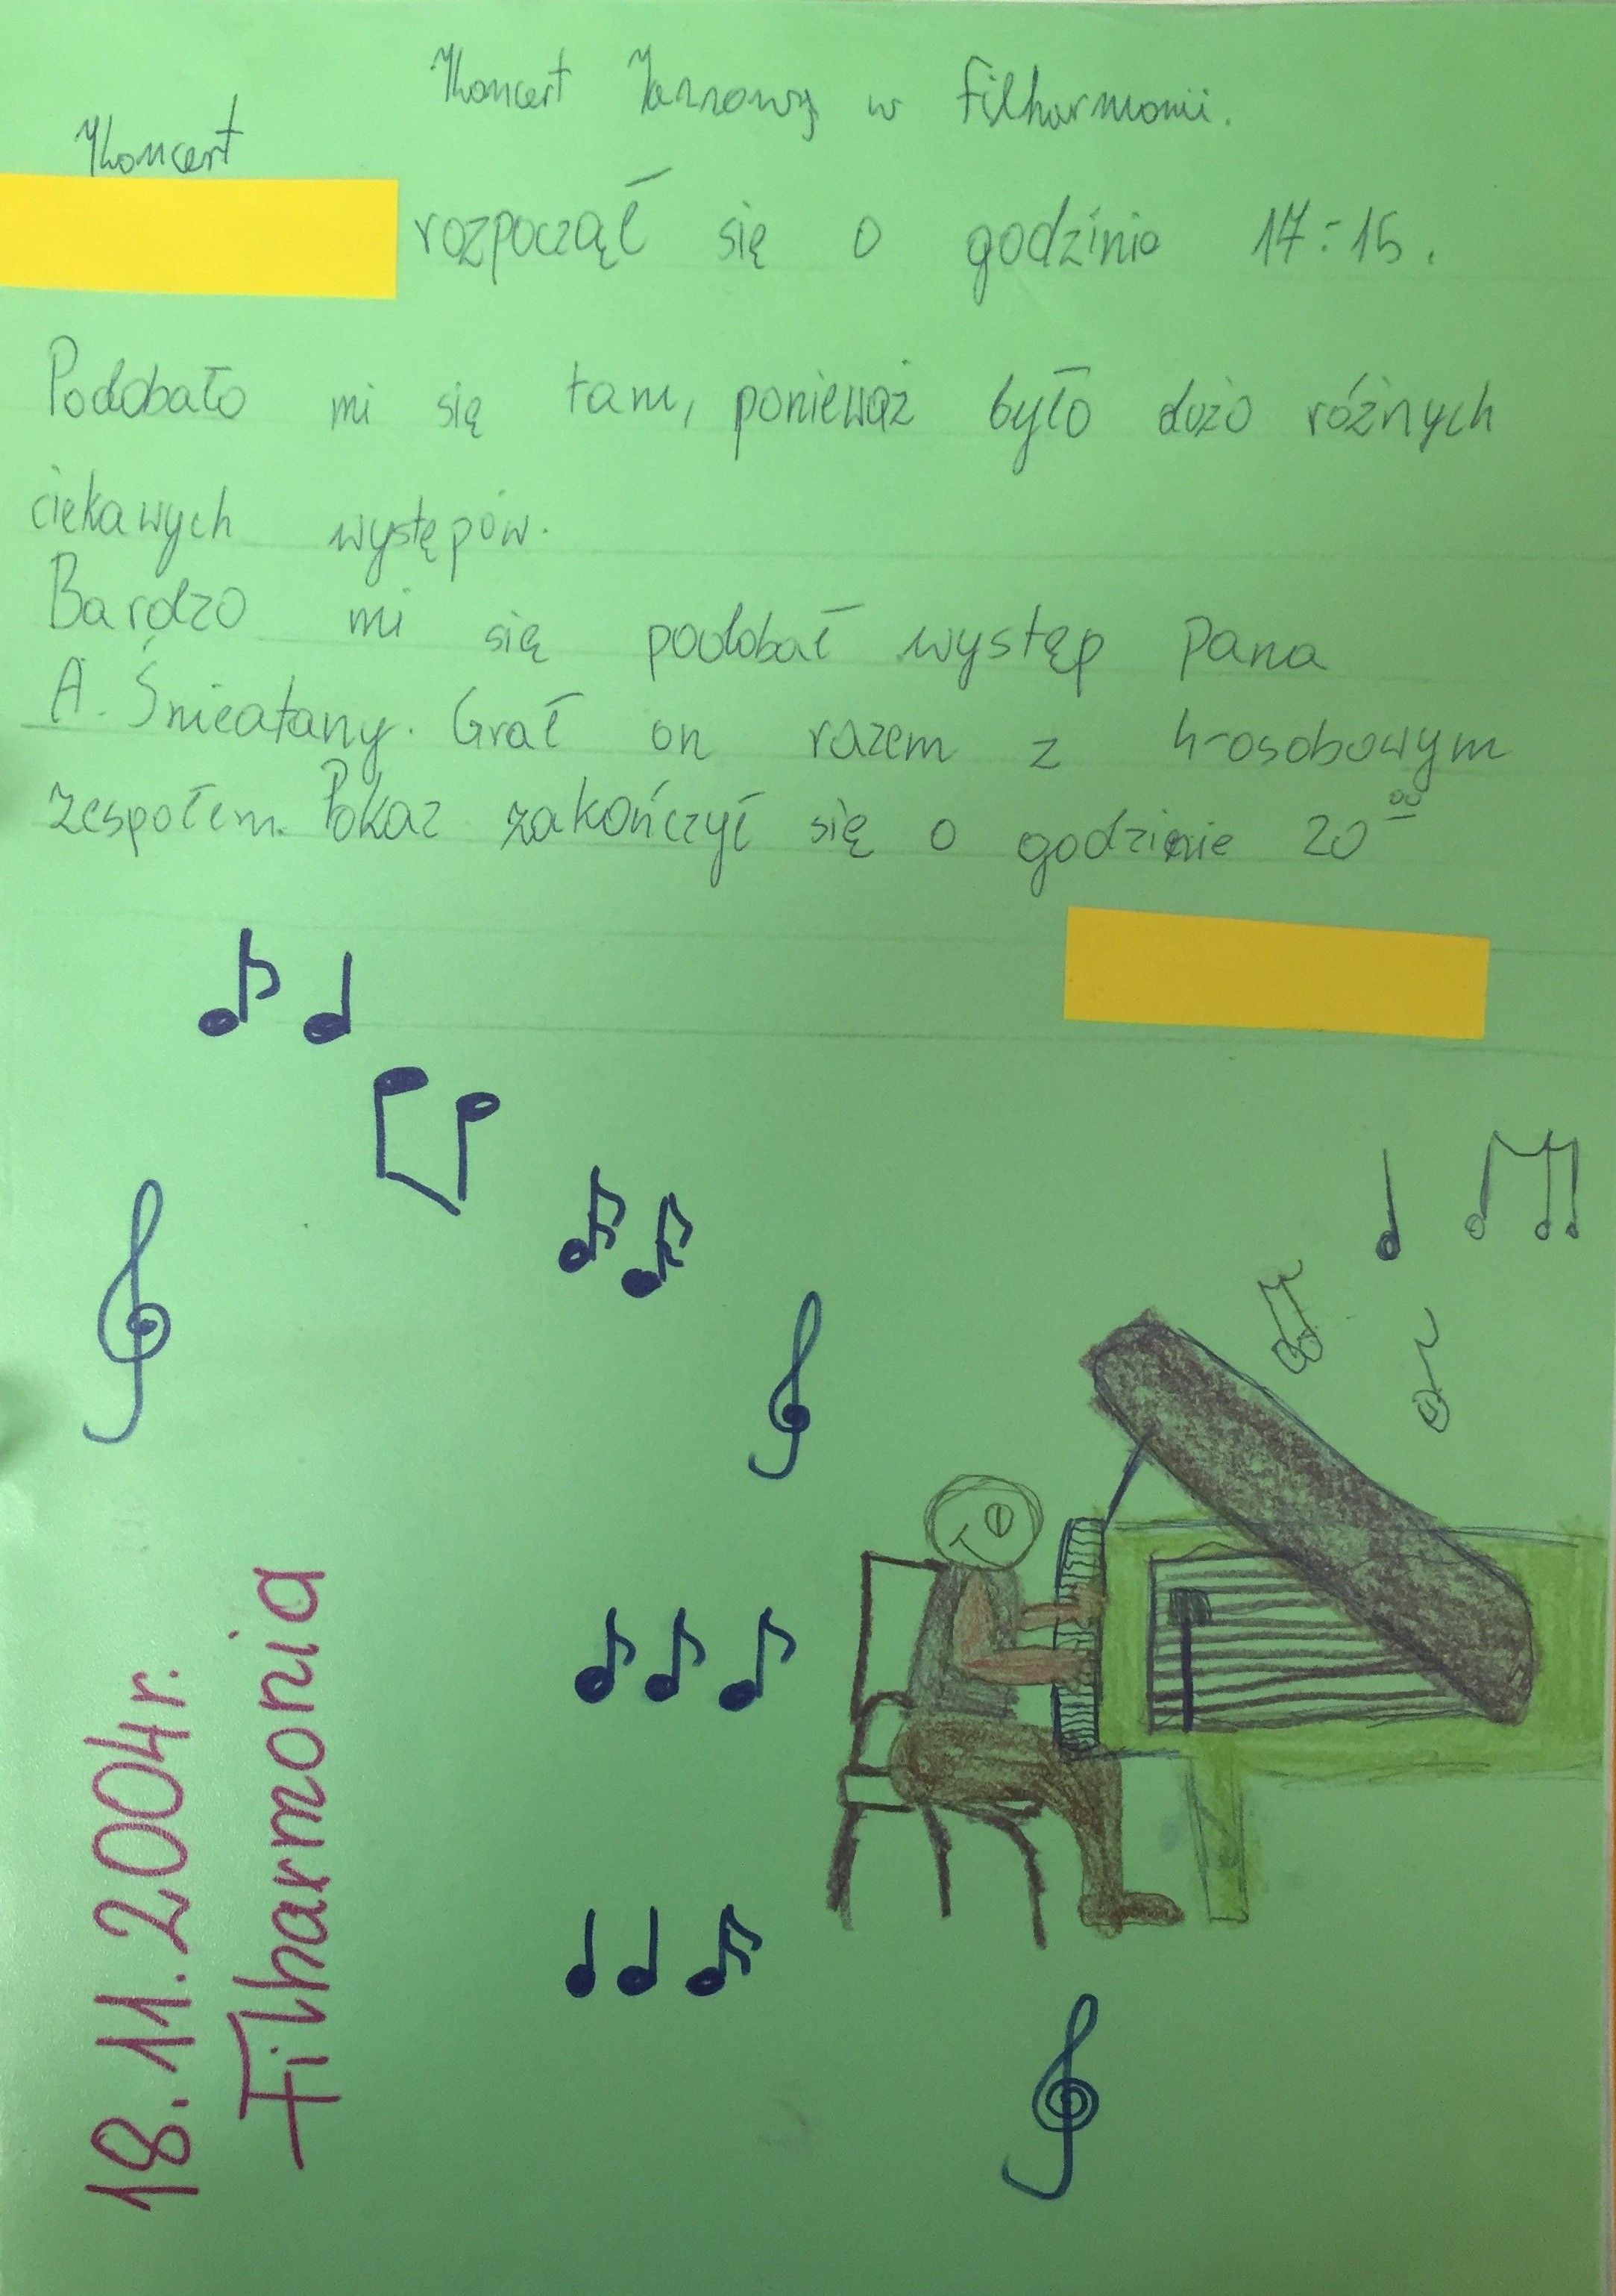 Koncert Jazzowy w filharmonii.
Koncert
rozpoczął się o godzinie 17:15.
Podobało mi się tam, ponieważ było dużo różnych
ciekawych występów.
Bardzo mi się podobał występ Pana
A. Śnieatany. Grał on razem z 4-osobowym
zespołem. Pokaz zakończył się o godzinie 20 00
18.11.2004r.
Filharmonia